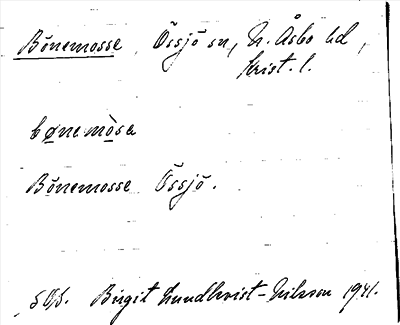 Bönemosse Össjö sn, N. Åsbo hd,
Krist. l.
bønemòsa
Bönemosse Össjö.
Birgit Lundkvist-Nilsson 1941.